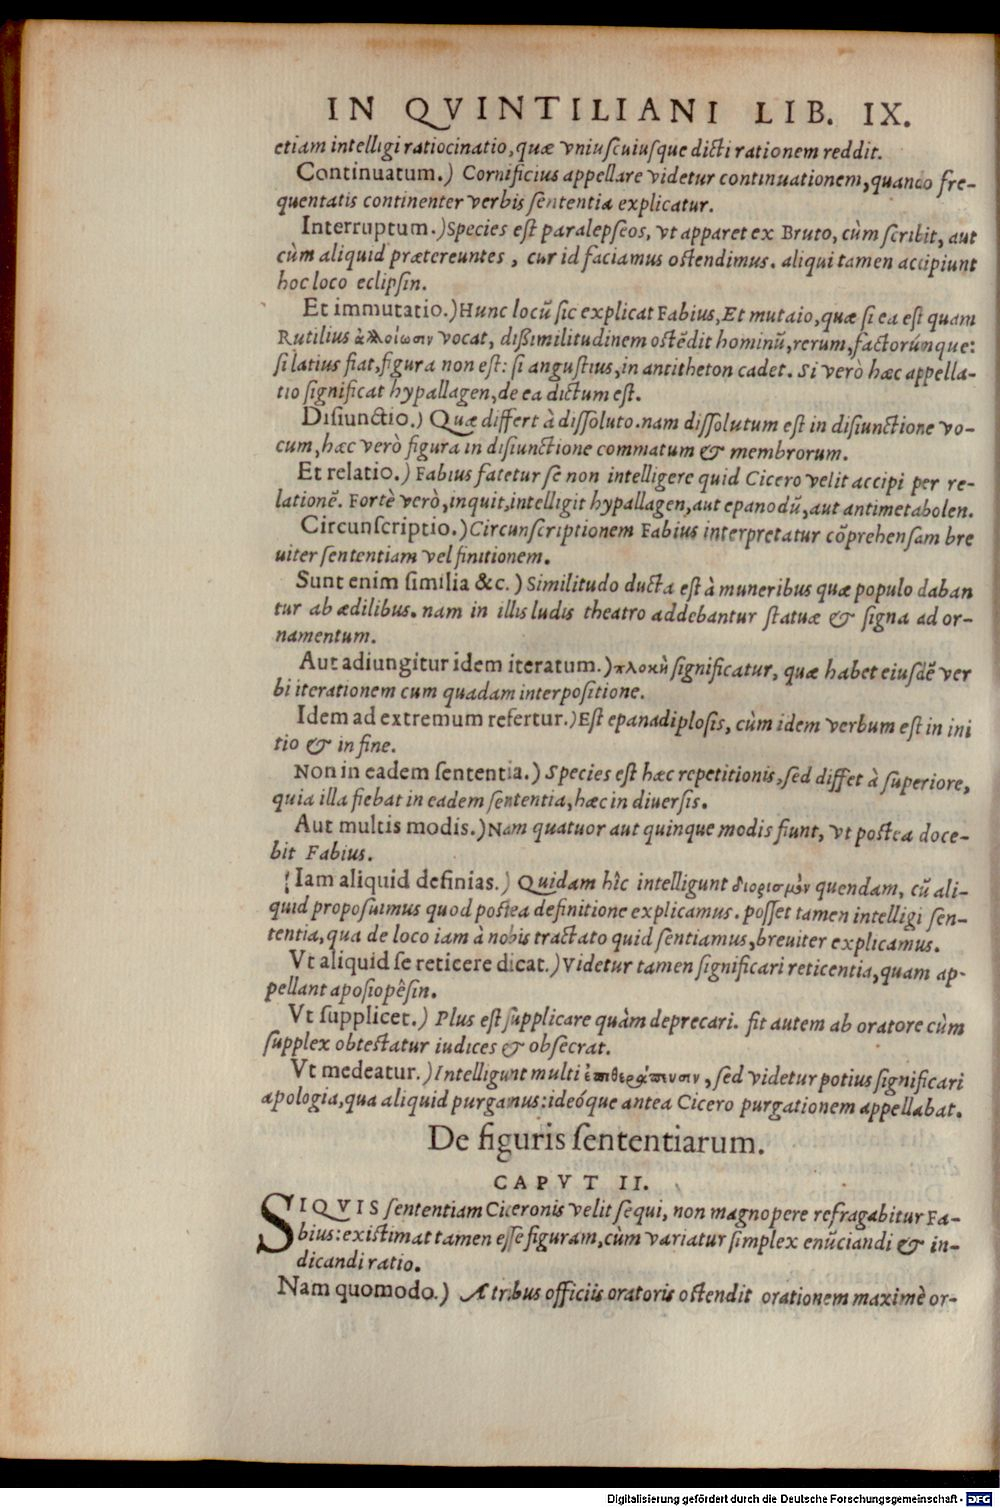 IN QVINTILIANI LIB. IX.
etiam intelligi ratiocinatio, quæ vniuscuiusque dicti rationem reddit.
Continuatum.) Cornificius appellare videtur continuationem, quando fre-
quentatis continenter verbis sententia explicatur.
Interruptum.) Species est paralepseos, vt apparet ex Bruto, cùm scribit, aut
cùm aliquid prætereuntes, cur id faciamus ostendimus. aliqui tamen accipiunt
hoc loco eclipsin.
Et immutatio.) Hunc locũ sic explicat Fabius, Et mutaio, quæ si ea est quam
Rutilius ἀλλοίωσιν vocat, dißimilitudinem ostẽdit hominũ, rerum, factorúnque:
si latius fiat, figura non est: si angustius, in antitheton cadet. Si verò hæc appella-
tio significat hypallagen, de ea dictum est.
Disiunctio.) Quæ differt à dissoluto. nam dissolutum est in disiunctione vo-
cum, hæc verò figura in disiunctione commatum & membrorum.
Et relatio.) Fabius fatetur se non intelligere quid Cicero velit accipi per re-
lationẽ. Fortè verò, inquit, intelligit hypallagen, aut epanodũ, aut antimetabolen.
Circunscriptio.) Circunscriptionem Fabius interpretatur cõprehensam bre
uiter sententiam vel finitionem.
Sunt enim similia &c.) Similitudo ducta est à muneribus quæ populo daban
tur ab ædilibus. nam in illis ludis theatro addebantur statuæ & signa ad or-
namentum.
Aut adiungitur idem iteratum.) πλοκὴ significatur, quæ habet eiusdẽ ver
bi iterationem cum quadam interpositione.
Idem ad extremum refertur.) Est epanadiplosis, cùm idem verbum est in ini
tio & in fine.
Non in eadem sententia.) Species est hæc repetitionis, sed differt à superiore,
quia illa fiebat in eadem sententia, hæc in diuersis.
Aut multis modis.) Nam quatuor aut quinque modis fiunt, vt postea doce-
bit Fabius.
Iam aliquid definias.) Quidam hîc intelligunt διορισμὸν quendam, cũ ali-
quid proposuimus quod postea definitione explicamus. posset tamen intelligi sen-
tentia, qua de loco iam à nobis tractato quid sentiamus, breuiter explicamus.
Vt aliquid se reticere dicat.) Videtur tamen significari reticentia, quam ap-
pellant aposiopêsin.
Vt supplicet.) Plus est supplicare quàm deprecari. fit autem ab oratore cùm
supplex obtestatur iudices & obsecrat.
Vt medeatur.) Intelligunt multi ἐπιθεράπευσιν, sed videtur potius significari
apologia, qua aliquid purgamus: ideóque antea Cicero purgationem appellabat.
De figuris sententiarum.
CAPVT II.
SIQVIS sententiam Ciceronis velit sequi, non magnopere refragabitur Fa-
bius: existimat tamen esse figuram, cùm variatur simplex enũciandi & in-
dicandi ratio.
Nam quomodo.) A tribus officiis oratoris ostendit orationem maximè or-
Digitalisierung gefördert durch die Deutsche Forschungsgemeinschaft - DFG